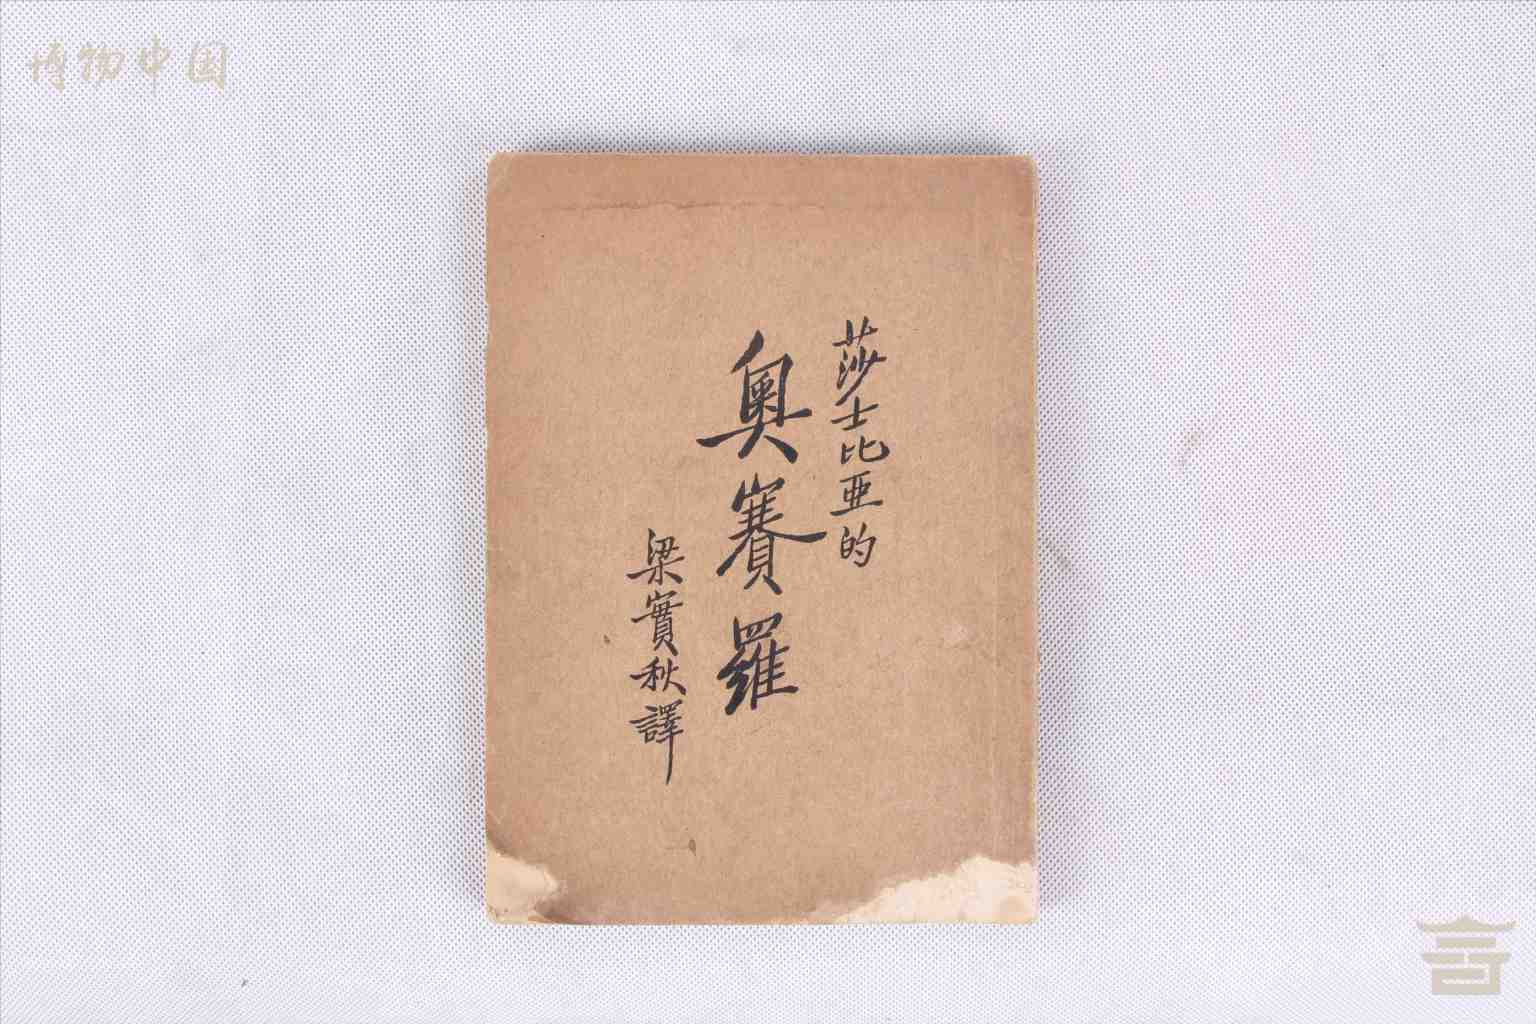 博物中国
莎士比亚的
奥賽羅
梁實秋譯